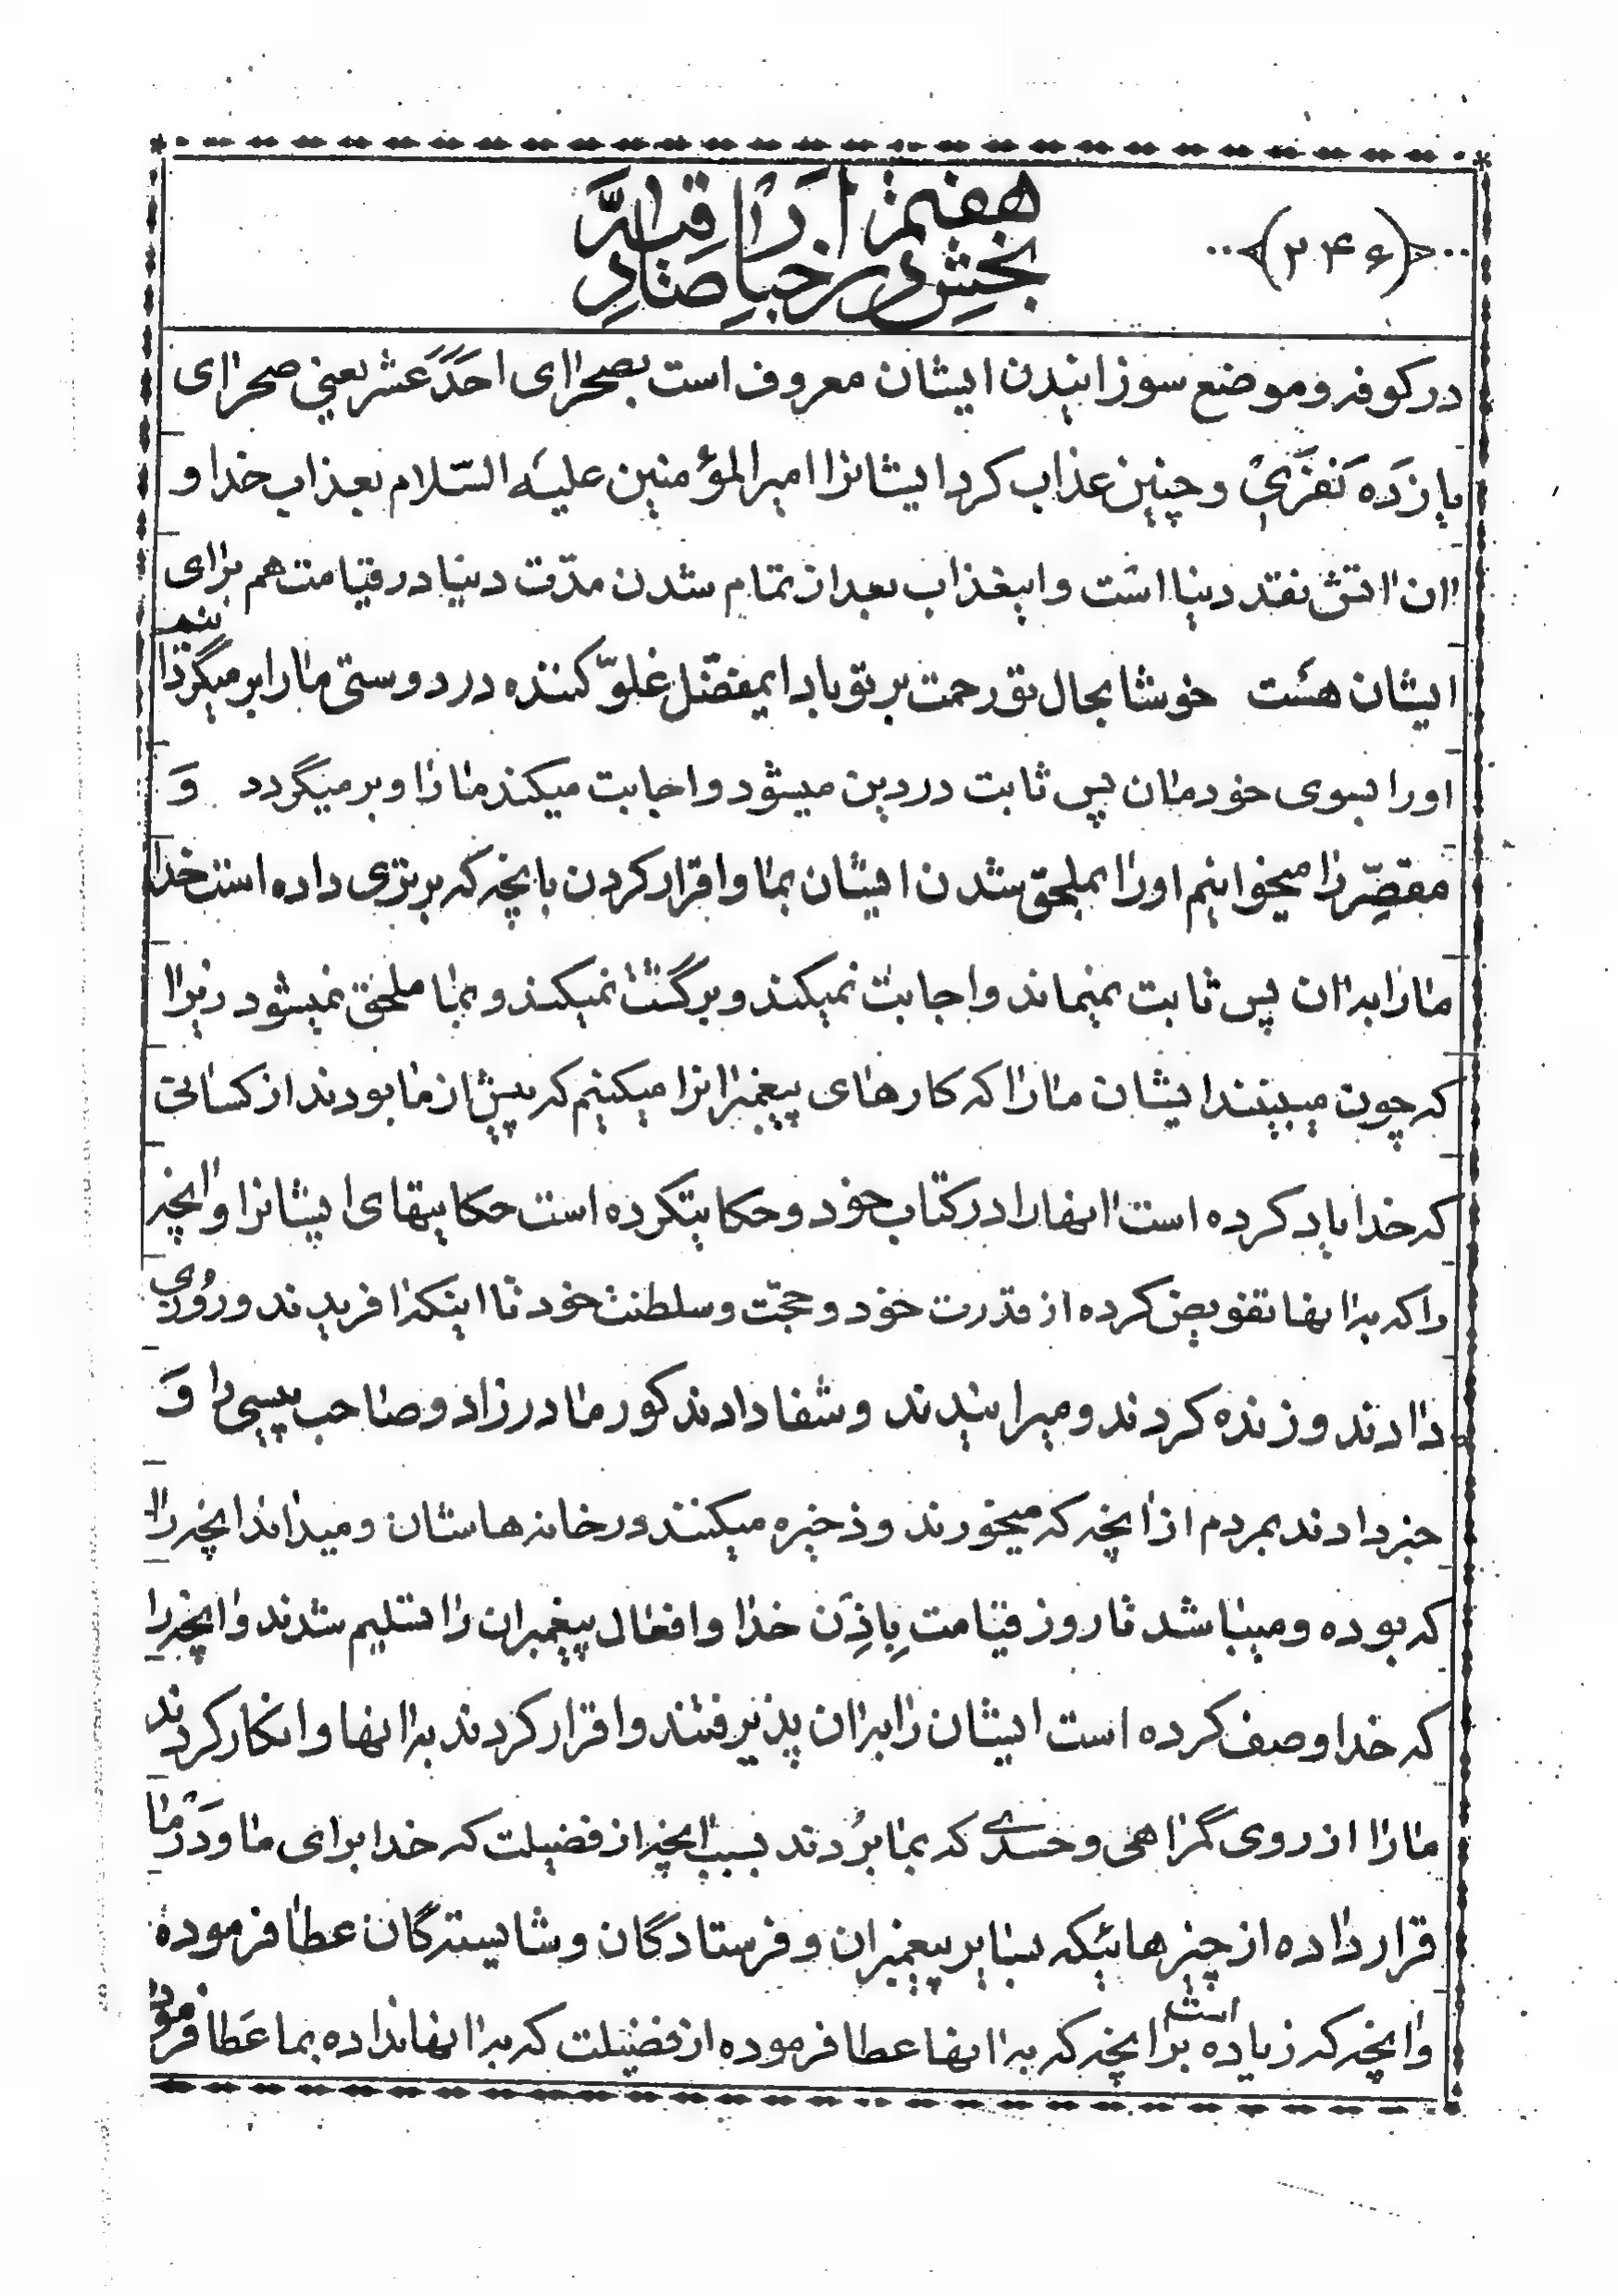 ﴿۲۴۶﴾
بخش هفتم در اخبار صادِقیَّه
در کوفه و موضع سوزانیدن ایشان معروف است بصحرای احَدَ عَشَر یعنی صحرای
یازدَه نَفَری و چنین عذاب کرد ایشانرا امیرالمؤمنین علیه السّلام بعذاب خدا و
آن آتش نقد دنیا است و اینعذاب بعد از تمام شدن مدّت دنیا در قیامت هم برای
ایشان هست خوشا بحال تو رحمت بر تو باد ایمفضّل غلوّ کننده در دوستی ما را برمیگردانیم
او را بسوی خودمان پس ثابت در دین میشود و اجابت میکند ما را و برمیگردد وَ
مقصِّر را میخوانیم او را بملحق شدن ایشان بما و اقرار کردن بآنچه که برتری داده است خدا
ما را به آن پس ثابت نمیماند و اجابت نمیکند و برگشت نمیکند و بما ملحق نمیشود زیرا
که چون میبینند ایشان ما را که کارهای پیغمبرانرا میکنیم که پیش از ما بودند از کسانی
که خدا یاد کرده است آنها را در کتاب خود و حکایتکرده است حکایتهای ایشانرا و آنچه
را که به آنها تفویض کرده از قدرت خود و حجّت و سلطنت خود تا اینکه آفریدند و روزی
دادند و زنده کردند و میرانیدند و شفا دادند کور مادرزاد و صاحب پیسی را وَ
خبر دادند بمردم از آنچه که میخورند و ذخیره میکنند در خانه‌هاشان و میداند آنچه را
که بوده و میباشد تا روز قیامت بِاذِن خدا و افعال پیغمبران را تسلیم شدند و آنچه را
که خدا وصف کرده است ایشان را به آن پذیرفتند و اقرار کردند به آنها و انکار کردند
ما را از روی گمراهی و حسدی که بما بُردند بسبب آنچه از فضیلت که خدا برای ما و دَر ما
قرار داده از چیزهائیکه بسایر پیغمبران و فرستادگان و شایستگان عطا فرموده
و آنچه که زیاده است بر آنچه که به آنها عطا فرموده از فضیلت که به آنها نداده بما عَطا فرموده